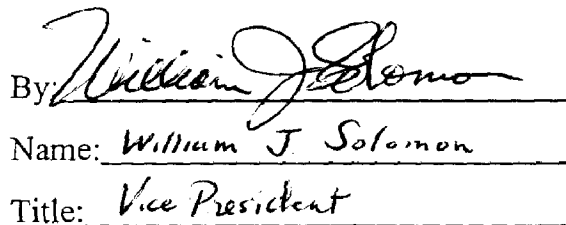 By: William J Solomon
Name: William J Solomon
Title: Vice President